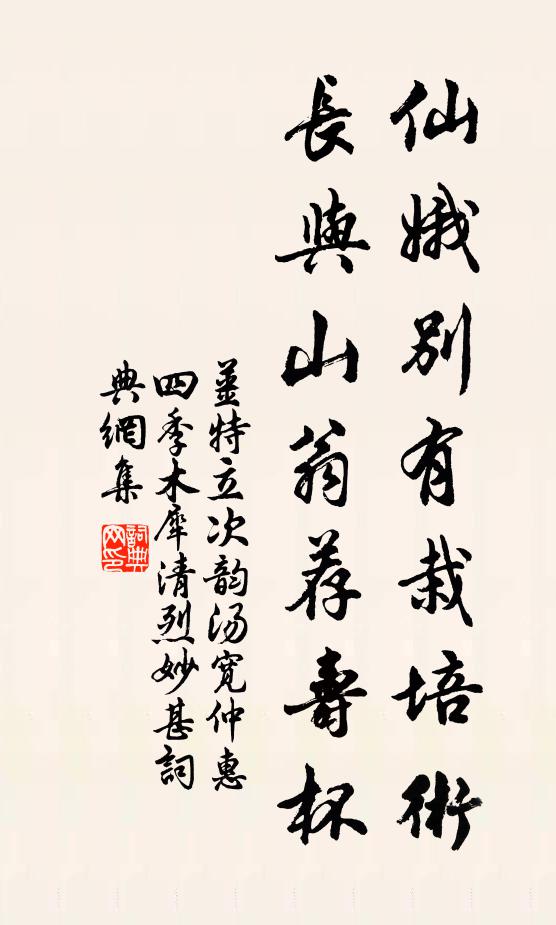 仙娥別有栽培術
長與山翁荐壽杯
薑特立次韵汤寬仲惠
四季木犀清烈妙甚詞
典網集
詞典
网印